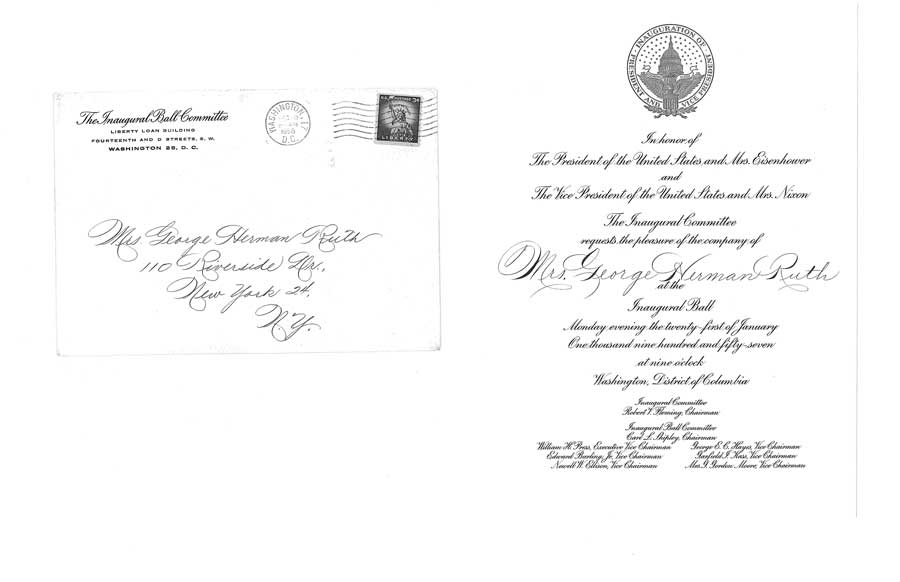 The Inaugural Ball Committee
LIBERTY LOAN BUILDING
FOURTEENTH AND D STREETS, S. W.
WASHINGTON 25, D. C.
WASHINGTON
1956
D.C.
U.S. POSTAGE 3¢
LIBERTY
Mrs. George Herman Ruth
110 Riverside Dr.,
New York 24,
N.Y.
INAUGURATION OF
PRESIDENT AND VICE PRESIDENT
In honor of
The President of the United States and Mrs. Eisenhower
and
The Vice President of the United States and Mrs. Nixon
The Inaugural Committee
requests the pleasure of the company of
Mrs. George Herman Ruth
at the
Inaugural Ball
Monday evening the twenty-first of January
One thousand nine hundred and fifty-seven
at nine o'clock
Washington, District of Columbia
Inaugural Committee
Robert V. Fleming, Chairman
Inaugural Ball Committee
Carl L. Shipley, Chairman
William H. Press, Executive Vice Chairman George E. C. Hayes, Vice Chairman
Edward Burling, Jr. Vice Chairman Garfield I. Kass, Vice Chairman
Newell W. Ellison, Vice Chairman Mrs. J. Gordon Moore, Vice Chairman